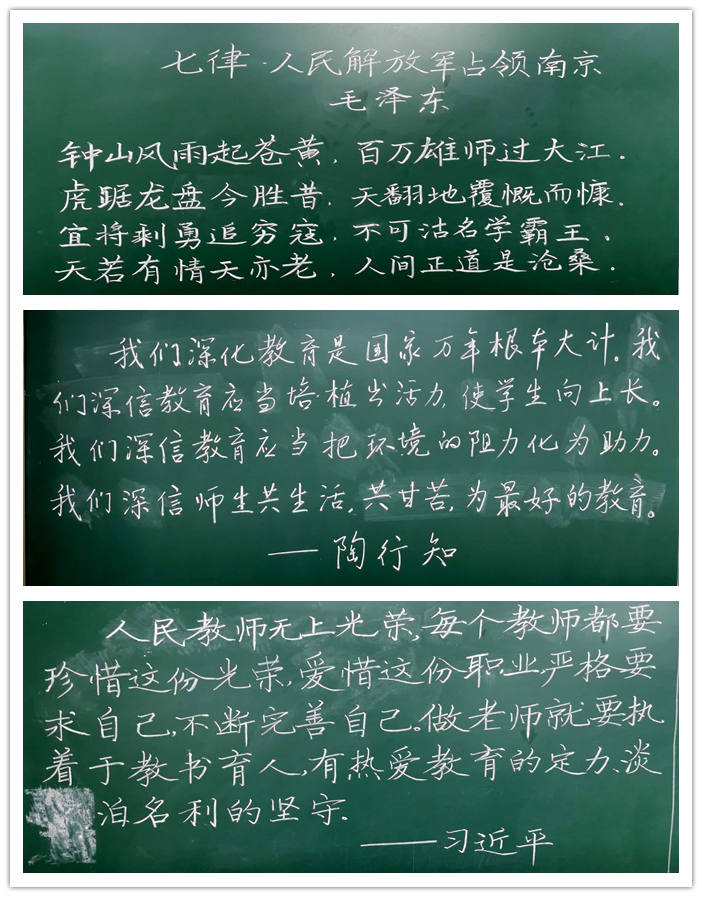 七律·人民解放军占领南京
毛泽东
钟山风雨起苍黄，百万雄师过大江．
虎踞龙盘今胜昔，天翻地覆慨而慷．
宜将剩勇追穷寇，不可沽名学霸王、
天若有情天亦老，人间正道是沧桑．
我们深化教育是国家万年根本大计。我
们深信教育应当培植出活力，使学生向上长。
我们深信教育应当把环境的阻力化为助力。
我们深信师生共生活，共甘苦，为最好的教育。
——陶行知
人民教师无上光荣，每个教师都要
珍惜这份光荣，爱惜这份职业，严格要
求自己，不断完善自己。做老师就要执
着于教书育人，有热爱教育的定力、淡
泊名利的坚守．
——习近平